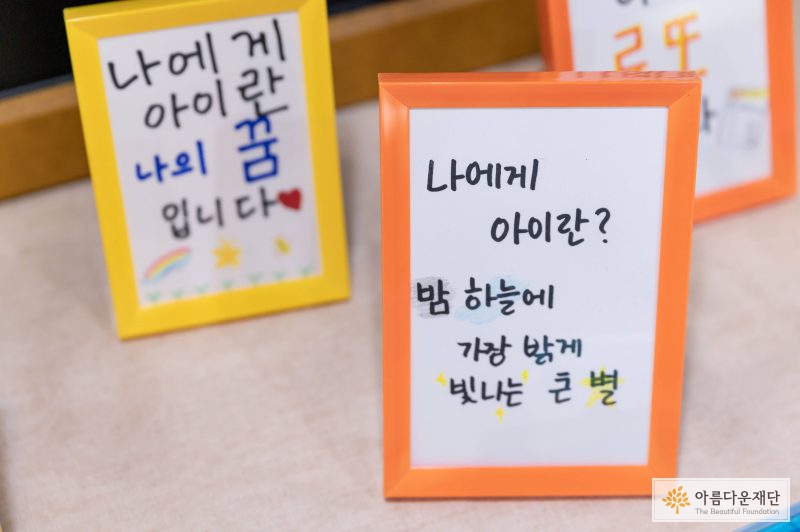 나에게
아이란
나의 꿈
입니다
나에게
아이란?
밤 하늘에
가장 밝게
빛나는 큰 별
로또
아름다운재단
The Beautiful Foundation